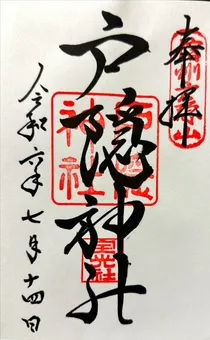 奉拝
戸隠神社
戸隠神社
宝光社
令和六年七月十四日